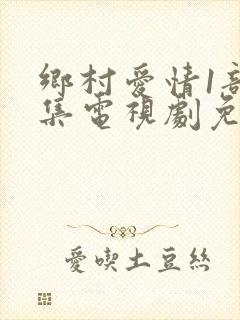 鄉村愛情1
集電視劇免
愛喫土豆絲